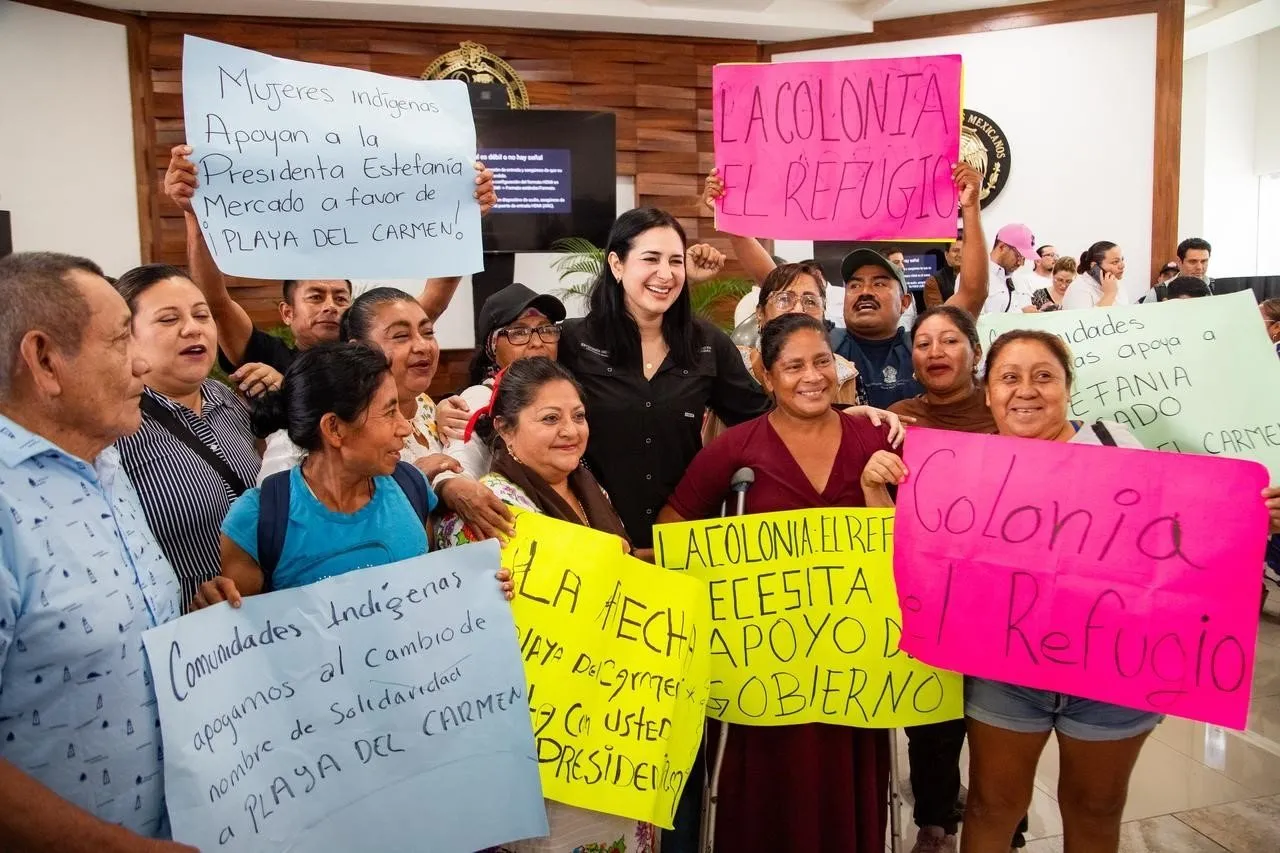 Mujeres indígenas
Apoyan a la
Presidenta Estefanía
Mercado a favor de
¡PLAYA DEL CARMEN!
LA COLONIA
EL REFUGIO
MEXICANOS
al es débil o no hay señal
Comunidades
as apoya a
EFANIA
ADO
EL CARMEN
Comunidades Indígenas
apogamos al Cambio de
nombre de Solidaridad
a PLAYA DEL CARMEN
LA
PLAYA Del Carmen
Con usted
PRESIDEN
LA COLONIA: EL REF
ECESITA
APOYO D
GOBIERNO
Colonia
el Refugio